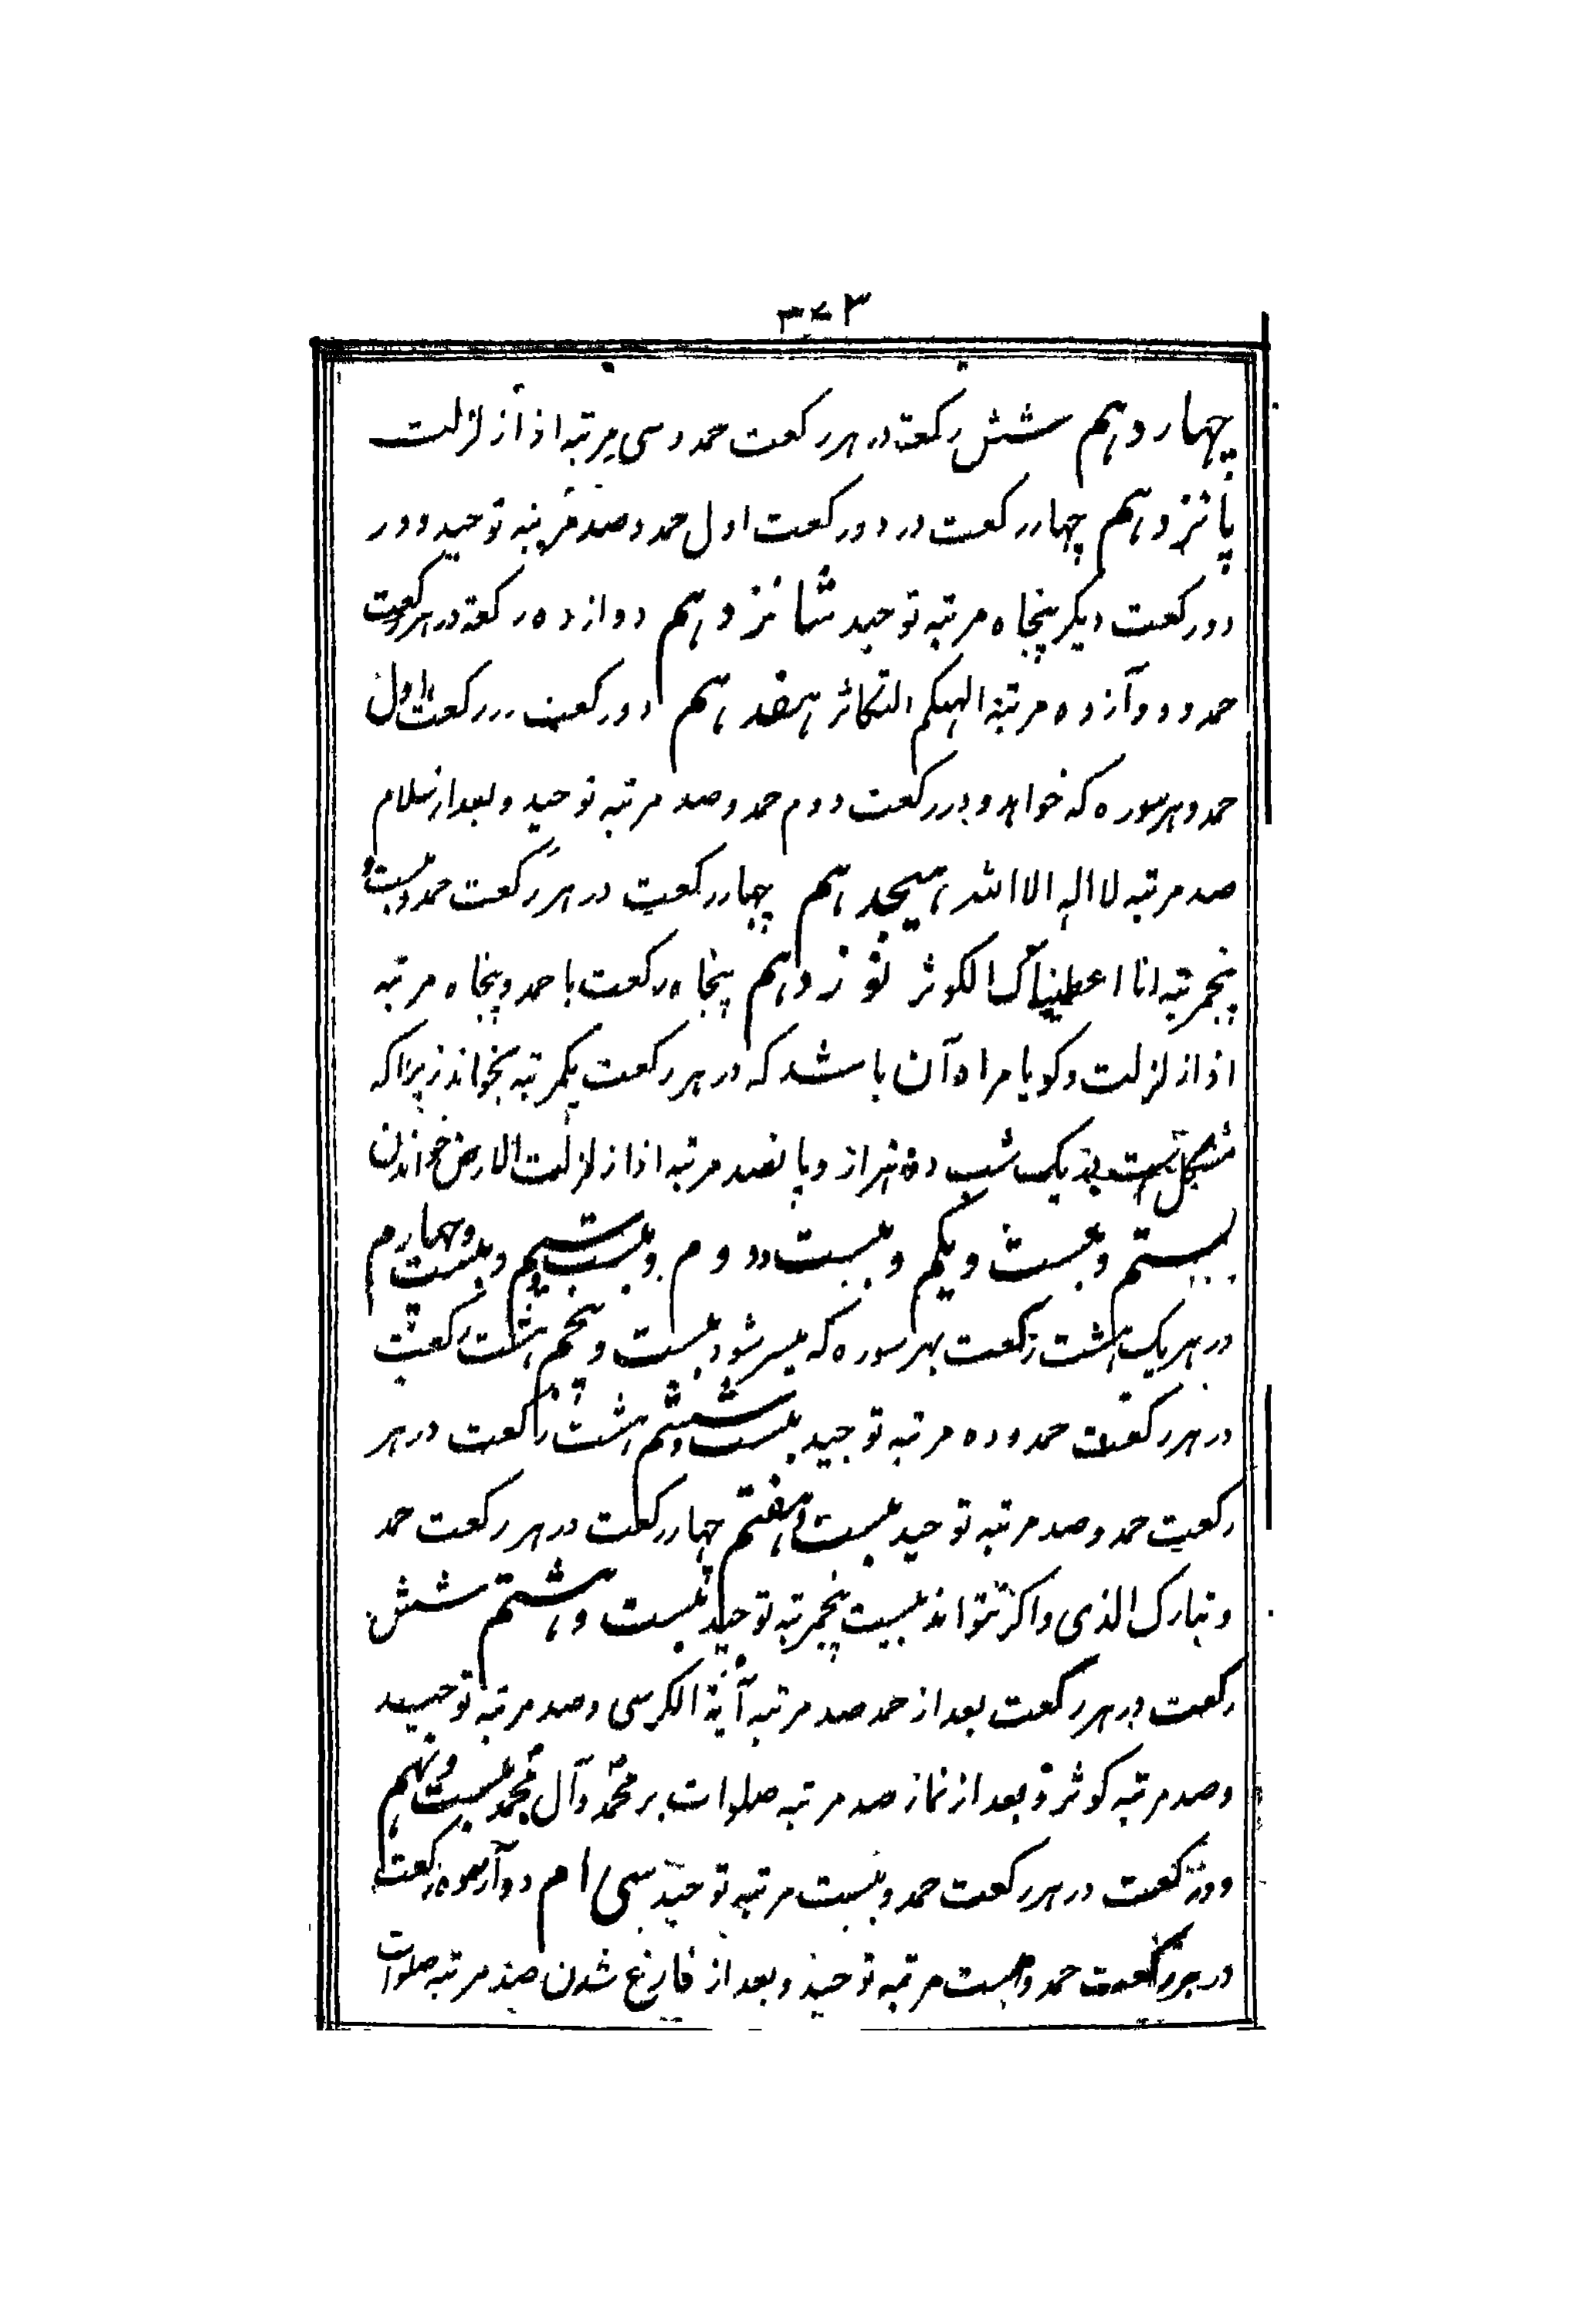 ۳۷۳
چهاردهم شش رکعة در هر رکعت حمد و سی مرتبه اذا زلزلت
پانزدهم چهار رکعت در دو رکعت اول حمد و صد مرتبه توحید و در
دو رکعت دیکر پنجاه مرتبه توحید شانزدهم دوازده رکعة در هر رکعت
حمد و دوآزده مرتبة الهیکم التکاثر هفدهم دو رکعت در رکعت اول
حمد و هر سوره که خواهد و در رکعت دوم حمد و صد مرتبه توحید و بعد از سلام
صد مرتبه لا اله الا الله هیجدهم چهار رکعت در هر رکعت حمد و بیست و
پنجمرتبه انا اعطیناک الکوثر نوزدهم پنجاه رکعت با حمد و پنجاه مرتبه
اذا زلزلت و کویا مراد آن باشد که در هر رکعت یکمرتبه بخواند زیرا که
مشکل است در یک شب دو هزار و پانصد مرتبه اذا زلزلت الارض خواندن
بیستم و بیست و یکم و بیست و دوم و بیست و سیم و بیست و چهارم
در هر یک هشت رکعت بهر سوره که میسر شود بیست و پنجم هشت رکعت
در هر رکعت حمد و ده مرتبه توحید بیست و ششم هشت رکعت در هر
رکعت حمد و صد مرتبه توحید بیست و هفتم چهار رکعت در هر رکعت حمد
و تبارک الذی و اکر نتواند بیست پنجمرتبه توحید بیست و هشتم شش
رکعت در هر رکعت بعد از حمد صد مرتبه آیة الکرسی و صد مرتبه توحید
و صد مرتبه کوثر و بعد از نماز صد مرتبه صلوات بر محمد و آل محمد بیست و نهم
دو رکعت در هر رکعت حمد و بیست مرتبه توحید سی ام دوآزده رکعت
در هر رکعت حمد و بیست مرتبه توحید و بعد از فارغ شدن صد مرتبه صلوات